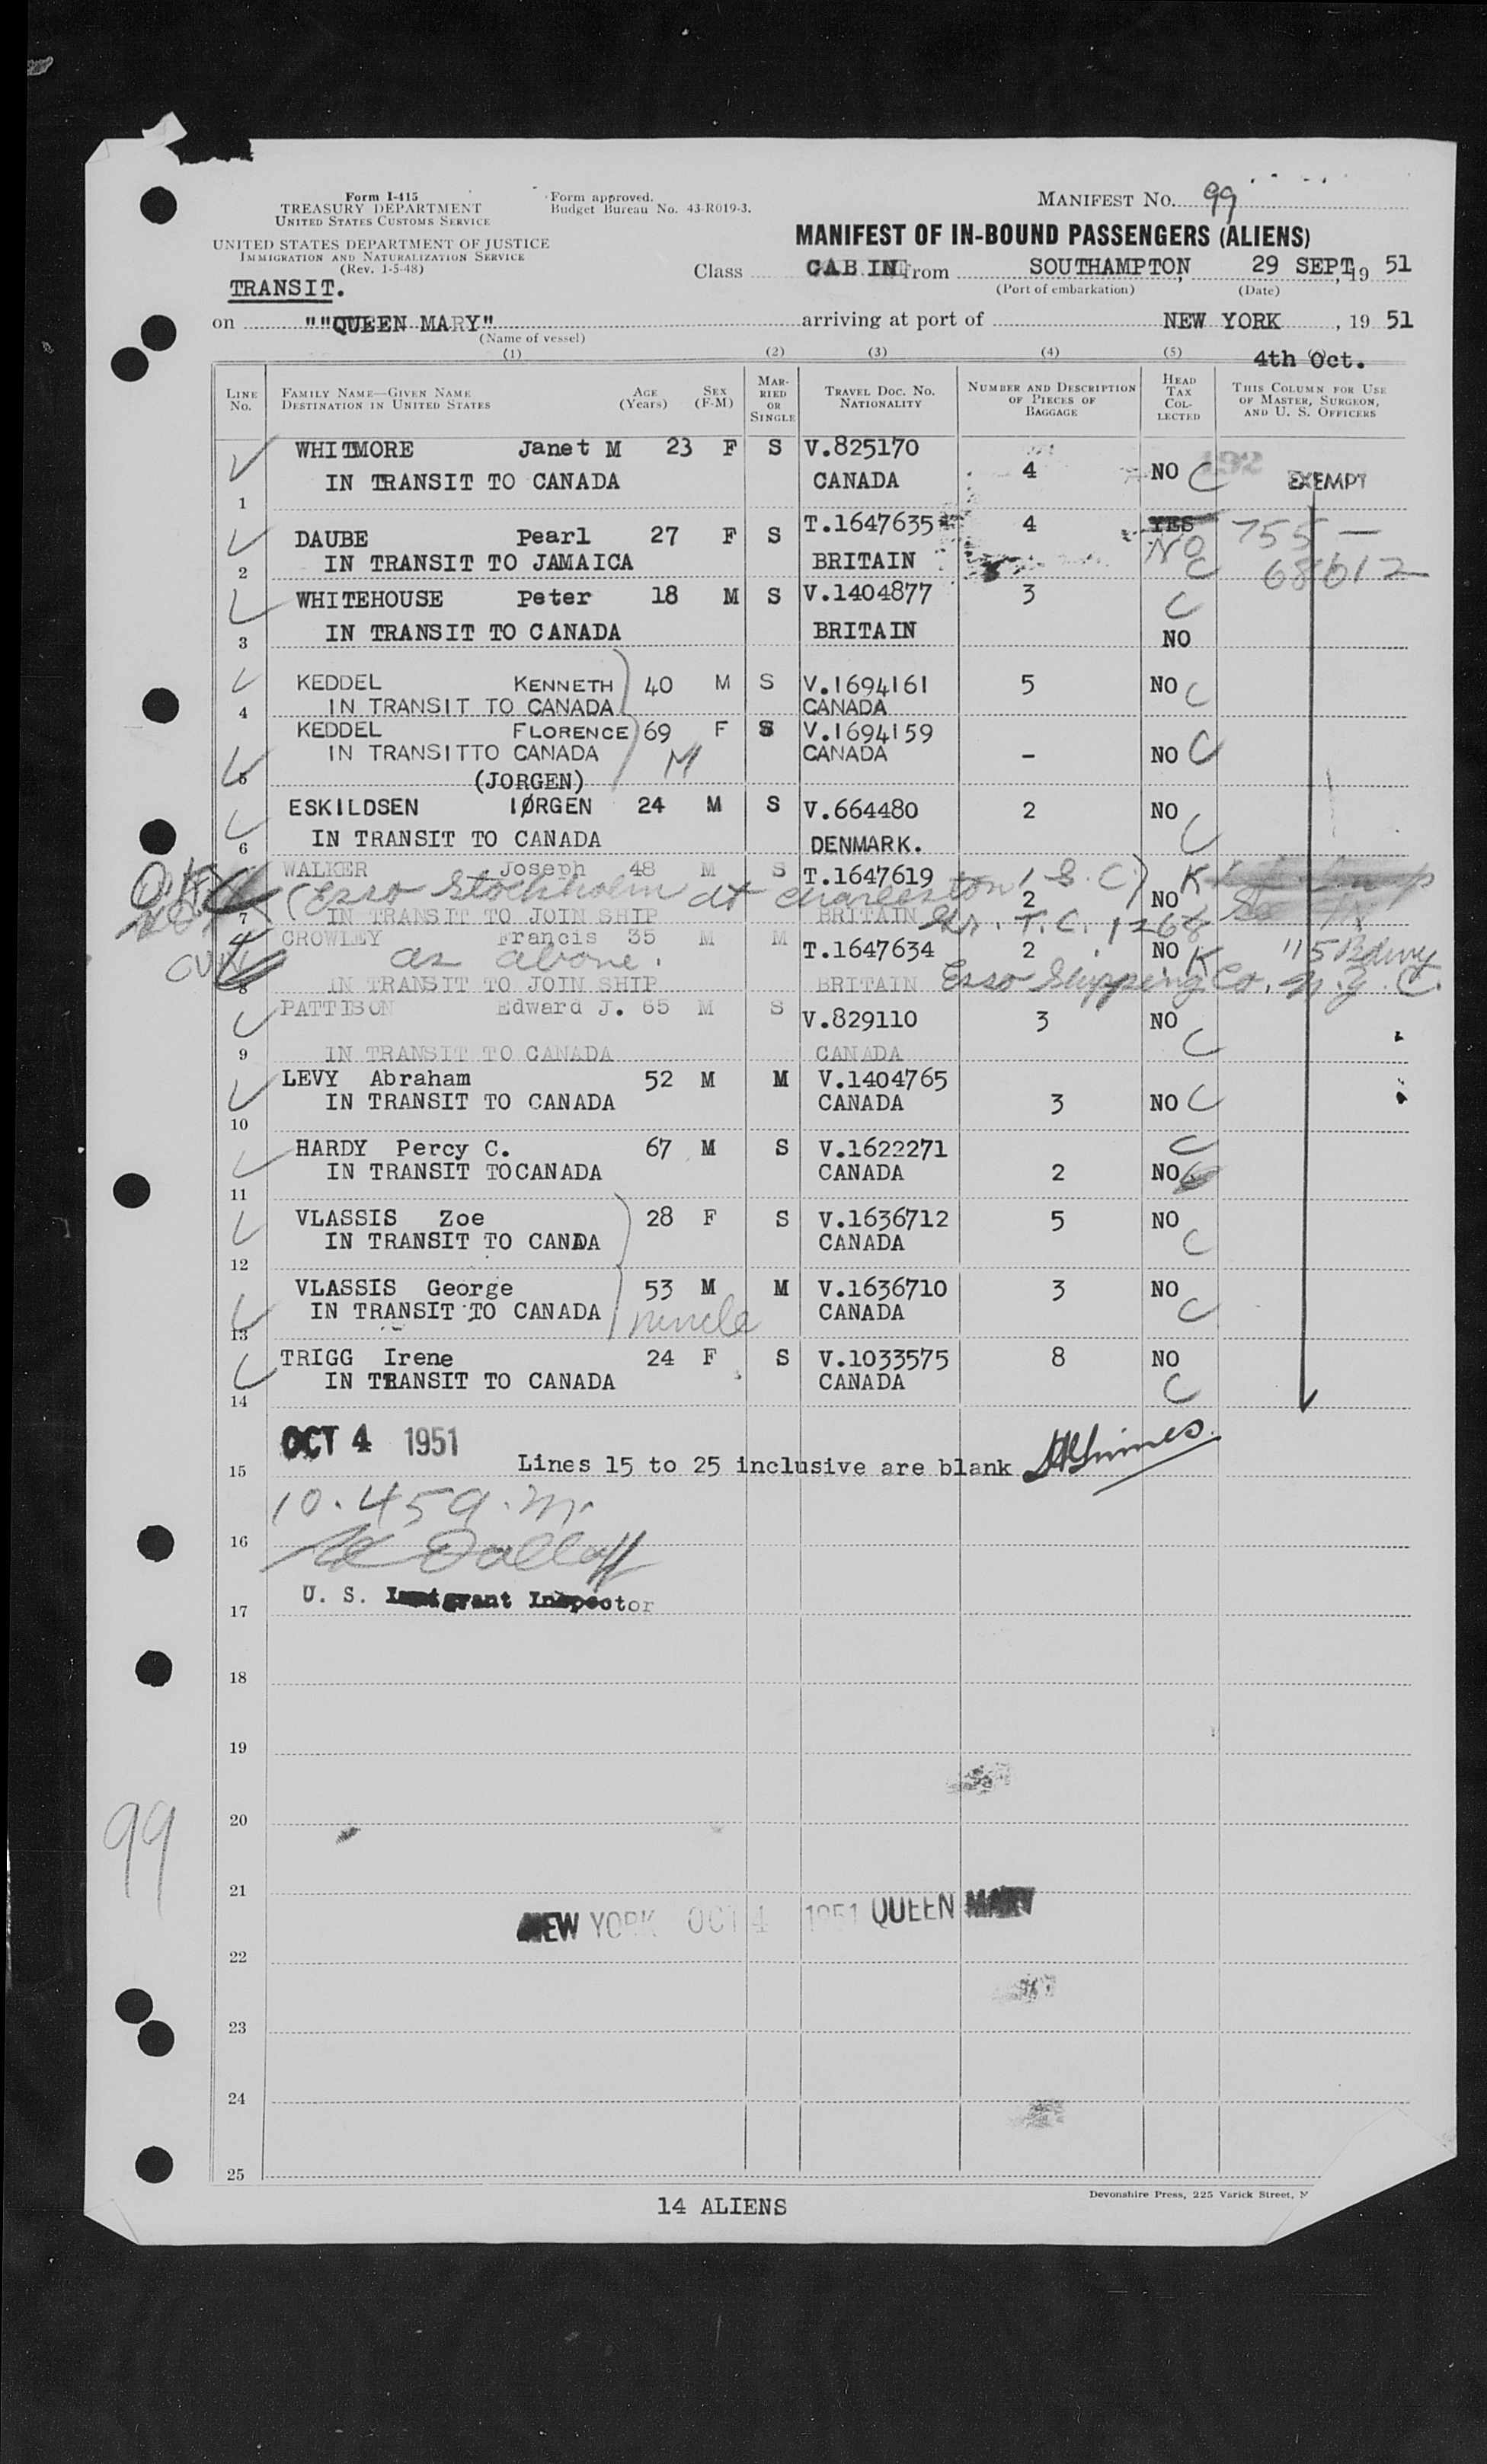 Form I-415
TREASURY DEPARTMENT
UNITED STATES CUSTOMS SERVICE
UNITED STATES DEPARTMENT OF JUSTICE
IMMIGRATION AND NATURALIZATION SERVICE
(Rev. 1-5-48)
TRANSIT.
Form approved.
Budget Bureau No. 43-R019-3.
MANIFEST NO. 99
MANIFEST OF IN-BOUND PASSENGERS (ALIENS)
Class CABIN from SOUTHAMPTON, 29 SEPT, 19 51
(Port of embarkation) (Date)
on ""QUEEN MARY" arriving at port of NEW YORK, 19 51
(Name of vessel)
4th Oct.
(1) (2) (3) (4) (5)
LINE No. FAMILY NAME—GIVEN NAME DESTINATION IN UNITED STATES AGE (Years) SEX (F-M) MARRIED OR SINGLE TRAVEL DOC. NO. NATIONALITY NUMBER AND DESCRIPTION OF PIECES OF BAGGAGE HEAD TAX COLLECTED THIS COLUMN FOR USE OF MASTER, SURGEON, AND U. S. OFFICERS
WHITMORE Janet M 23 F S V.825170 4 NO C 192 EXEMPT
1 IN TRANSIT TO CANADA CANADA
DAUBE Pearl 27 F S T.1647635 4 YES NO C 755 —
2 IN TRANSIT TO JAMAICA BRITAIN 68612
WHITEHOUSE Peter 18 M S V.1404877 3 C
3 IN TRANSIT TO CANADA BRITAIN NO
KEDDEL KENNETH 40 M S V.1694161 5 NO C
4 IN TRANSIT TO CANADA CANADA
KEDDEL FLORENCE 69 F S V.1694159
5 IN TRANSITTO CANADA M CANADA – NO C
(JORGEN)
ESKILDSEN IØRGEN 24 M S V.664480 2 NO C
6 IN TRANSIT TO CANADA DENMARK.
WALKER Joseph 48 M S T.1647619 2 NO K
(Esso Stockholm at Charleston, S.C)
7 IN TRANSIT TO JOIN SHIP BRITAIN
CROWLEY Francis 35 M M T.1647634 2 NO K 115 Bdwy
as above.
8 IN TRANSIT TO JOIN SHIP BRITAIN Esso Shipping Co. N.Y.C.
PATTISON Edward J. 65 M S V.829110 3 NO C
9 IN TRANSIT TO CANADA CANADA
LEVY Abraham 52 M M V.1404765
10 IN TRANSIT TO CANADA CANADA 3 NO C
HARDY Percy C. 67 M S V.1622271 C
11 IN TRANSIT TOCANADA CANADA 2 NO
VLASSIS Zoe 28 F S V.1636712 5 NO
12 IN TRANSIT TO CANADA CANADA C
VLASSIS George 53 M M V.1636710 3 NO
13 IN TRANSIT TO CANADA uncle CANADA C
TRIGG Irene 24 F S V.1033575 8 NO
14 IN TRANSIT TO CANADA CANADA C
OCT 4 1951
15 Lines 15 to 25 inclusive are blank
10.45 a.m.
16
U. S. Immigrant Inspector
17
18
19
20
99
21
NEW YORK OCT 4 1951 QUEEN MARY
22
23
24
25
Devonshire Press, 225 Varick Street, N
14 ALIENS